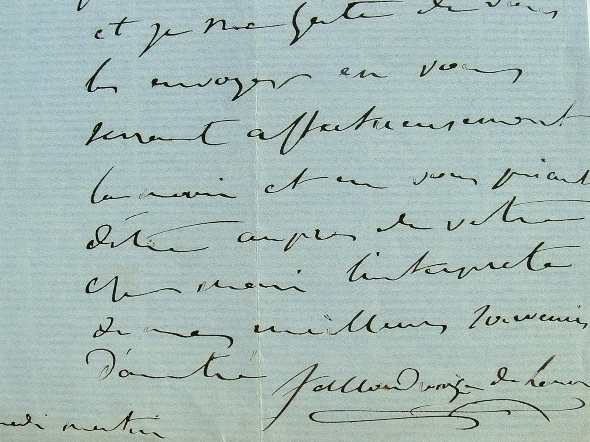 et je me hâte de vous
les envoyer en vous
serrant affectueusement
la main et en vous priant
d'être auprès de votre
cher mari l'interprète
de mes meilleurs souvenirs
matin